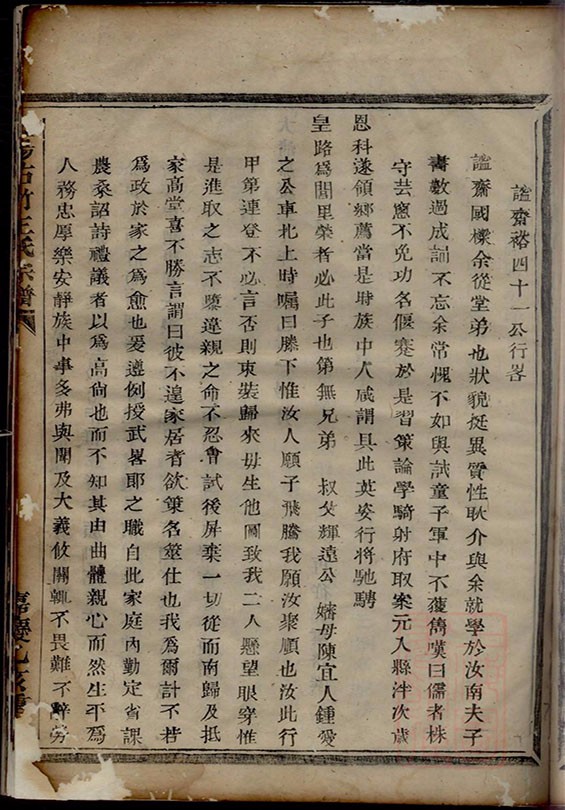 謐齋裕四十一公行畧
謐齋國樑余從堂弟也狀貌挺異質性耿介與余就學於汝南夫子
書數過成誦不忘余常愧不如與試童子軍中不獲雋嘆曰儒者株
守芸窻不免功名偃蹇於是習策論學騎射府取案元入縣泮次歲
恩科遂領鄉薦當是時族中人咸謂具此英姿行將馳騁
皇路為閭里榮者必此子也第無兄弟 叔父輝遠公 嬸母陳宜人鍾愛
之公車北上時嘱曰膝下惟汝人願子飛騰我願汝聚順也汝此行
甲第連登不必言否則束裝歸來毋生他圖致我二人懸望眼穿惟
是進取之志不嚛違親之命不忍會試後屏棄一切從而南歸及抵
家高堂喜不勝言謂曰彼不遑家居者欲策名筮仕也我為爾計不若
為政於家之為愈也爰遵例授武畧郎之職自此家庭內勤定省課
農桑詔詩禮議者以為高尙也而不知其由曲體親心而然生平為
人務忠厚樂安靜族中事多弗與聞及大義攸關輒不畏難不辭勞
王氏宗譜